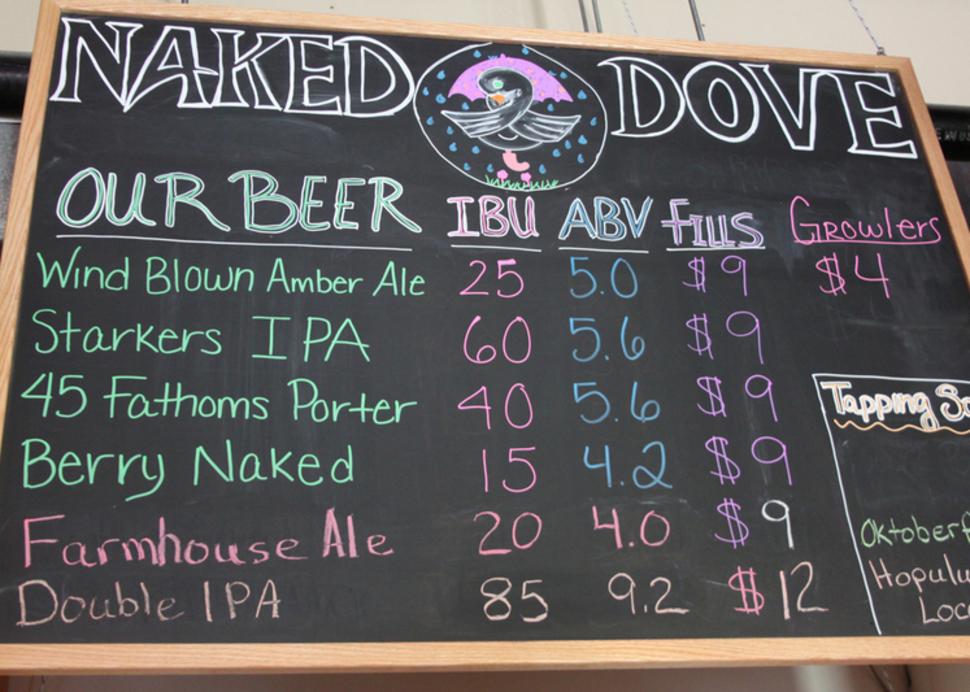 NAKED DOVE
OUR BEER IBU ABV fills Growlers
Wind Blown Amber Ale 25 5.0 $9 $4
Starkers IPA 60 5.6 $9
45 Fathoms Porter 40 5.6 $9
Tapping
Berry Naked 15 4.2 $9
Farmhouse Ale 20 4.0 $9
Double IPA 85 9.2 $12